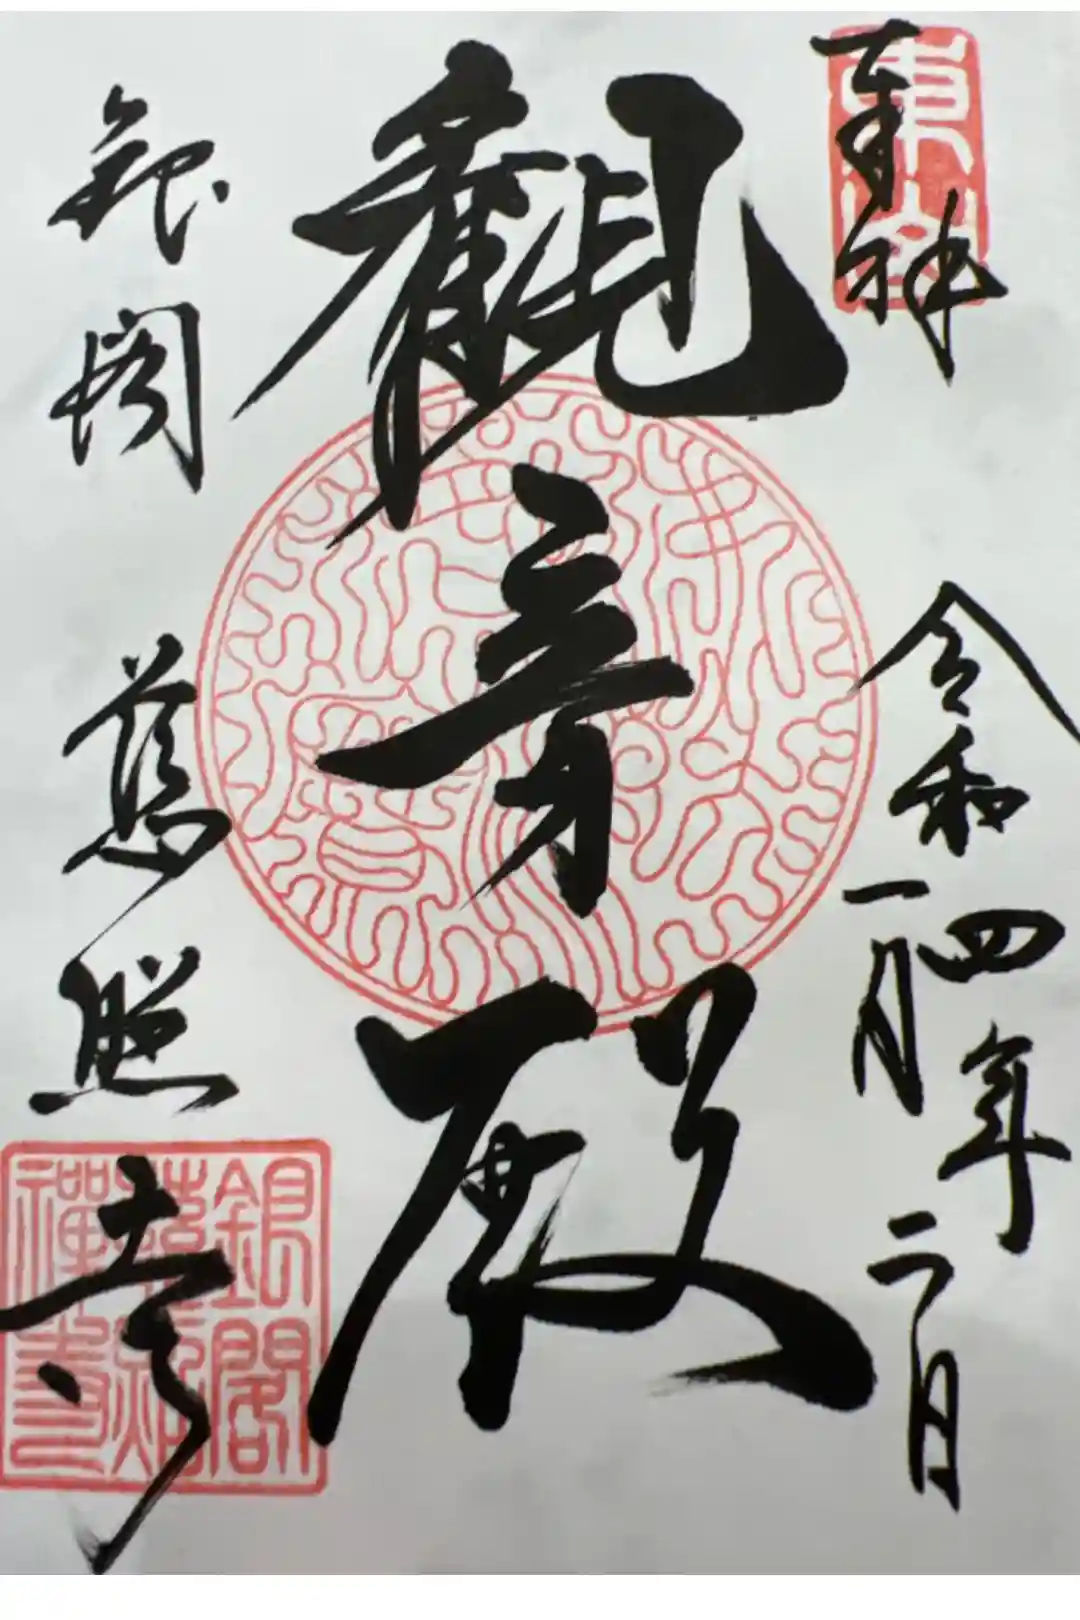 奉拝
令和四年二月
一日
觀音殿
銀閣
慈照寺
銀閣
慈照
禪寺